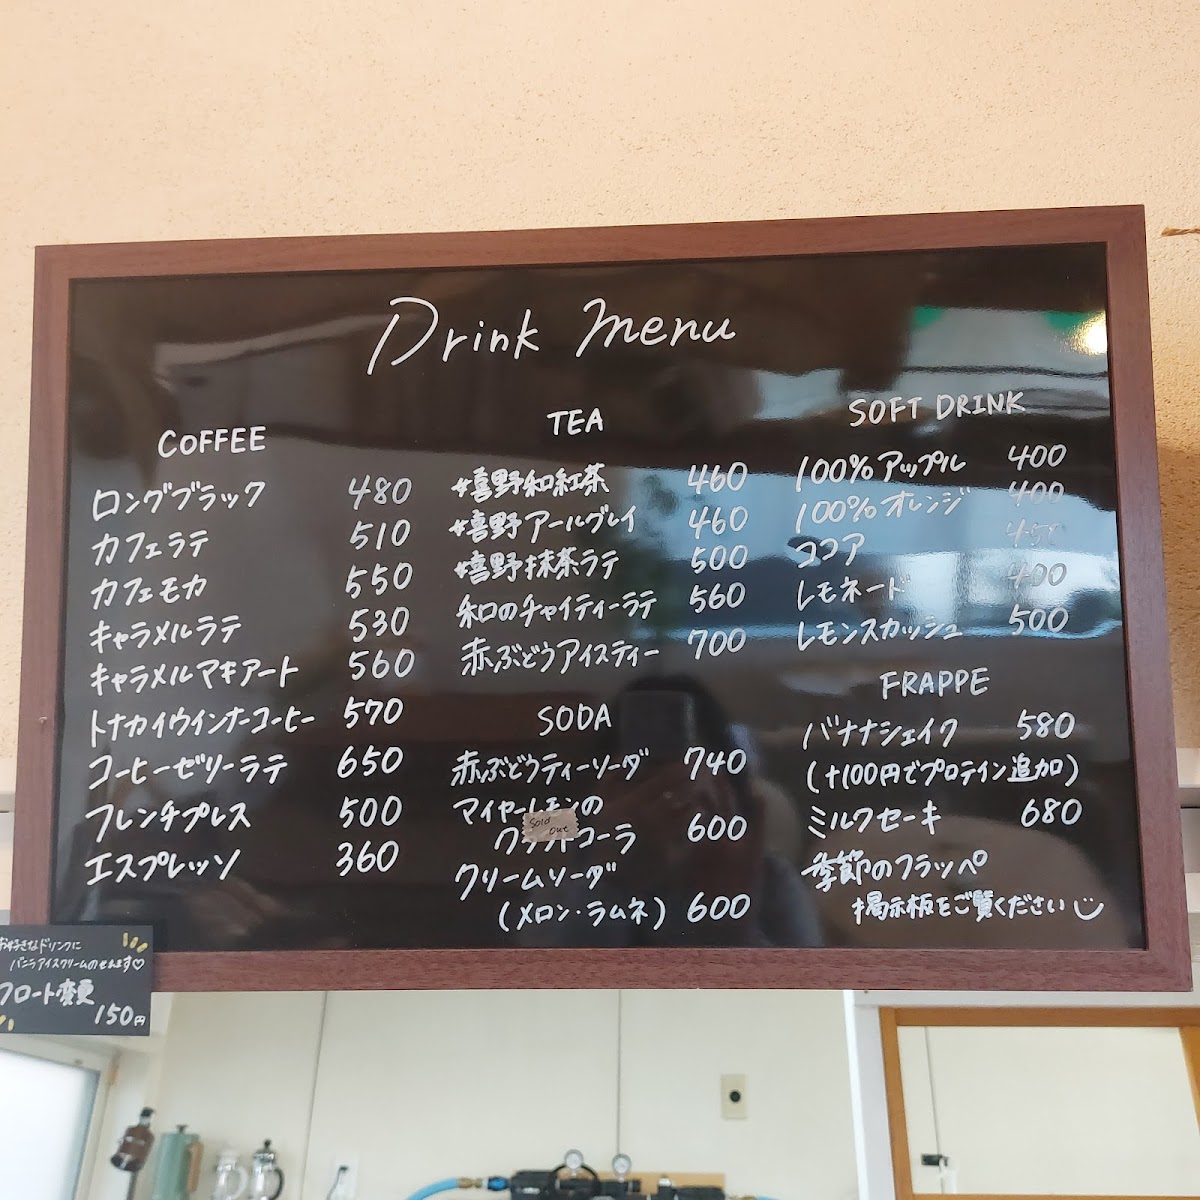 Drink Menu
COFFEE
ロングブラック 480
カフェラテ 510
カフェモカ 550
キャラメルラテ 530
キャラメルマキアート 560
トナカイウインナーコーヒー 570
コーヒーゼリーラテ 650
フレンチプレス 500
エスプレッソ 360
TEA
嬉野和紅茶 460
嬉野アールグレイ 460
嬉野抹茶ラテ 500
和のチャイティーラテ 560
赤ぶどうアイスティー 700
SODA
赤ぶどうティーソーダ 740
マイヤーレモンの
クラフトコーラ 600
Sold
Out
クリームソーダ
(メロン・ラムネ) 600
SOFT DRINK
100%アップル 400
100%オレンジ 400
ココア 450
レモネード 400
レモンスカッシュ 500
FRAPPE
バナナシェイク 580
(+100円でプロテイン追加)
ミルクセーキ 680
季節のフラッペ
掲示板をご覧ください
お好きなドリンクに
バニラアイスクリームのせれます♡
フロート変更
150円